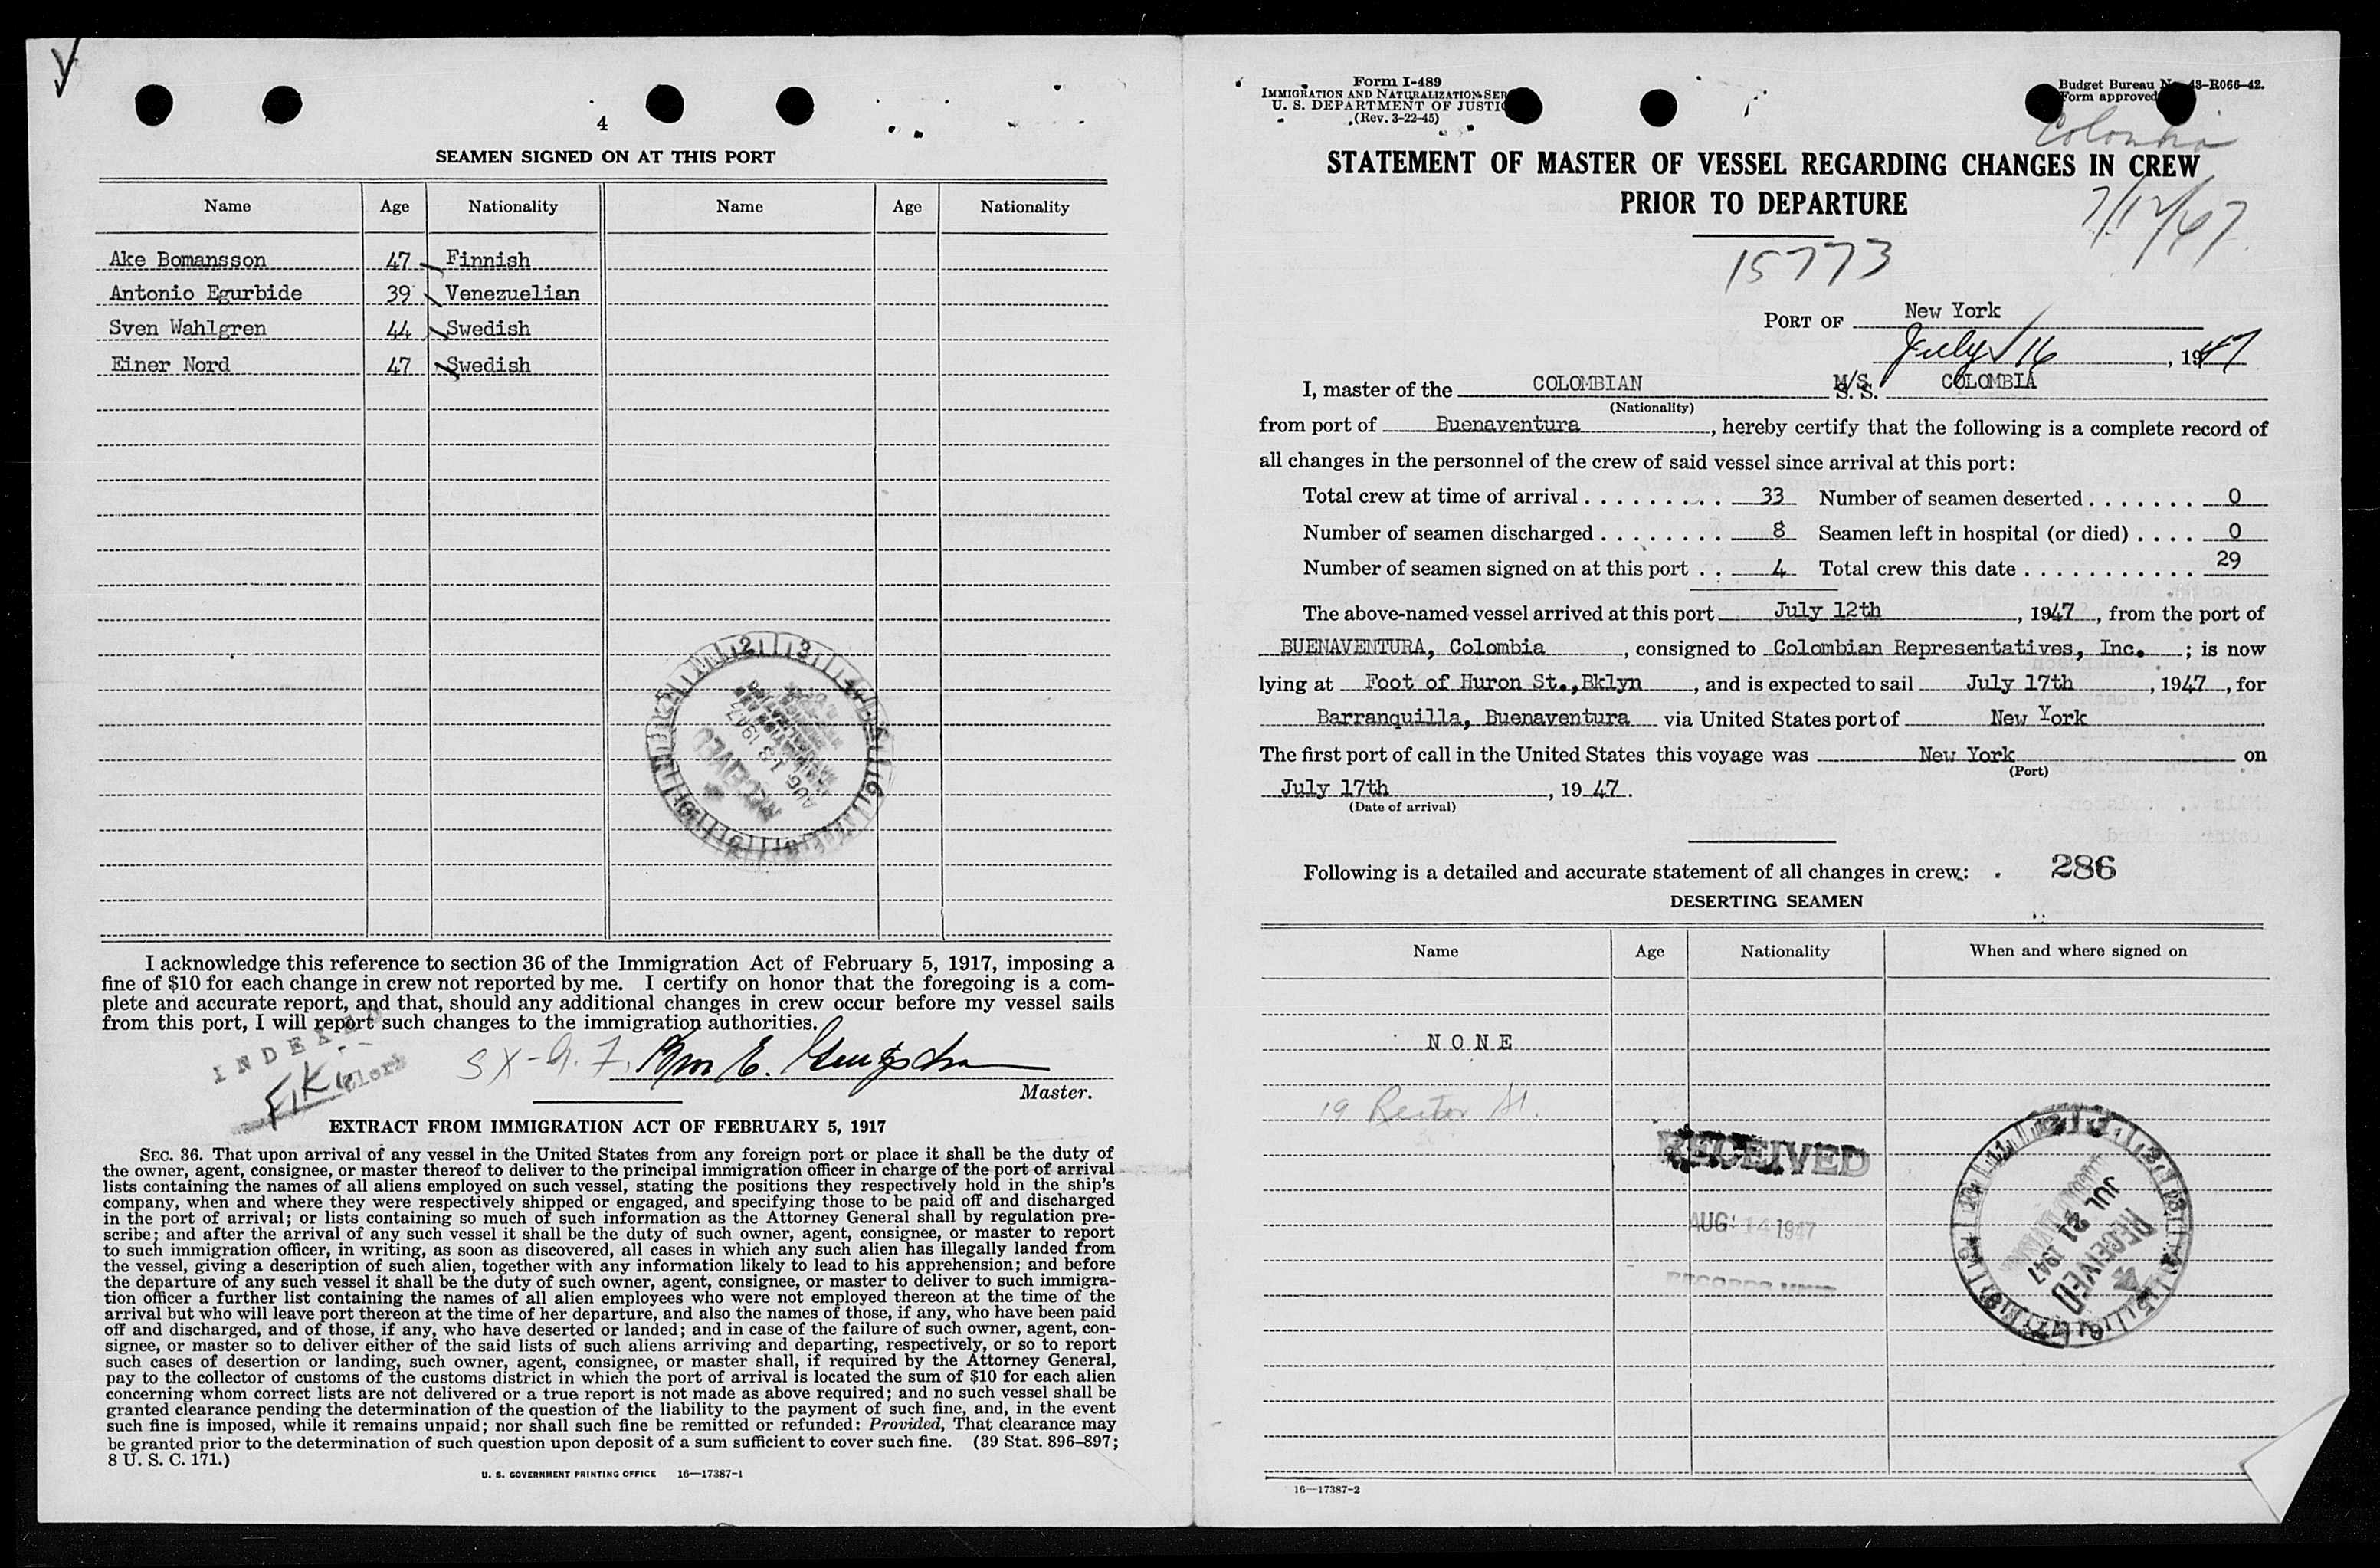 4
SEAMEN SIGNED ON AT THIS PORT
Name Age Nationality Name Age Nationality
Ake Bomansson 47 Finnish
Antonio Egurbide 39 Venezuelian
Sven Wahlgren 44 Swedish
Einer Nord 47 Swedish
RECEIVED
AUG 13 1947
I acknowledge this reference to section 36 of the Immigration Act of February 5, 1917, imposing a
fine of $10 for each change in crew not reported by me. I certify on honor that the foregoing is a com-
plete and accurate report, and that, should any additional changes in crew occur before my vessel sails
from this port, I will report such changes to the immigration authorities.
INDEXED
Clerk
Master.
EXTRACT FROM IMMIGRATION ACT OF FEBRUARY 5, 1917
SEC. 36. That upon arrival of any vessel in the United States from any foreign port or place it shall be the duty of
the owner, agent, consignee, or master thereof to deliver to the principal immigration officer in charge of the port of arrival
lists containing the names of all aliens employed on such vessel, stating the positions they respectively hold in the ship's
company, when and where they were respectively shipped or engaged, and specifying those to be paid off and discharged
in the port of arrival; or lists containing so much of such information as the Attorney General shall by regulation pre-
scribe; and after the arrival of any such vessel it shall be the duty of such owner, agent, consignee, or master to report
to such immigration officer, in writing, as soon as discovered, all cases in which any such alien has illegally landed from
the vessel, giving a description of such alien, together with any information likely to lead to his apprehension; and before
the departure of any such vessel it shall be the duty of such owner, agent, consignee, or master to deliver to such immigra-
tion officer a further list containing the names of all alien employees who were not employed thereon at the time of the
arrival but who will leave port thereon at the time of her departure, and also the names of those, if any, who have been paid
off and discharged, and of those, if any, who have deserted or landed; and in case of the failure of such owner, agent, con-
signee, or master so to deliver either of the said lists of such aliens arriving and departing, respectively, or so to report
such cases of desertion or landing, such owner, agent, consignee, or master shall, if required by the Attorney General,
pay to the collector of customs of the customs district in which the port of arrival is located the sum of $10 for each alien
concerning whom correct lists are not delivered or a true report is not made as above required; and no such vessel shall be
granted clearance pending the determination of the question of the liability to the payment of such fine, and, in the event
such fine is imposed, while it remains unpaid; nor shall such fine be remitted or refunded: Provided, That clearance may
be granted prior to the determination of such question upon deposit of a sum sufficient to cover such fine. (39 Stat. 896–897;
8 U. S. C. 171.)
U. S. GOVERNMENT PRINTING OFFICE 16—17387-1
Form I-489
IMMIGRATION AND NATURALIZATION SER
U. S. DEPARTMENT OF JUSTIC
(Rev. 3-22-45)
Budget Bureau N 43-R066-42.
Form approved
Colombia
STATEMENT OF MASTER OF VESSEL REGARDING CHANGES IN CREW
PRIOR TO DEPARTURE
7/12/47.
15773
PORT OF New York
July 16, 1947
I, master of the COLOMBIAN M/S. S. S. COLOMBIA
(Nationality)
from port of Buenaventura, hereby certify that the following is a complete record of
all changes in the personnel of the crew of said vessel since arrival at this port:
Total crew at time of arrival 33 Number of seamen deserted 0
Number of seamen discharged 8 Seamen left in hospital (or died) 0
Number of seamen signed on at this port 4 Total crew this date 29
The above-named vessel arrived at this port July 12th, 1947, from the port of
BUENAVENTURA, Colombia, consigned to Colombian Representatives, Inc.; is now
lying at Foot of Huron St., Bklyn, and is expected to sail July 17th, 1947, for
Barranquilla, Buenaventura via United States port of New York
The first port of call in the United States this voyage was New York on
(Port)
July 17th, 1947.
(Date of arrival)
Following is a detailed and accurate statement of all changes in crew: 286
DESERTING SEAMEN
Name Age Nationality When and where signed on
NONE
19 Rector St.
RECEIVED
AUG 14 1947
RECORDS UNIT
RECEIVED
JUL 21 1947
16—17387-2